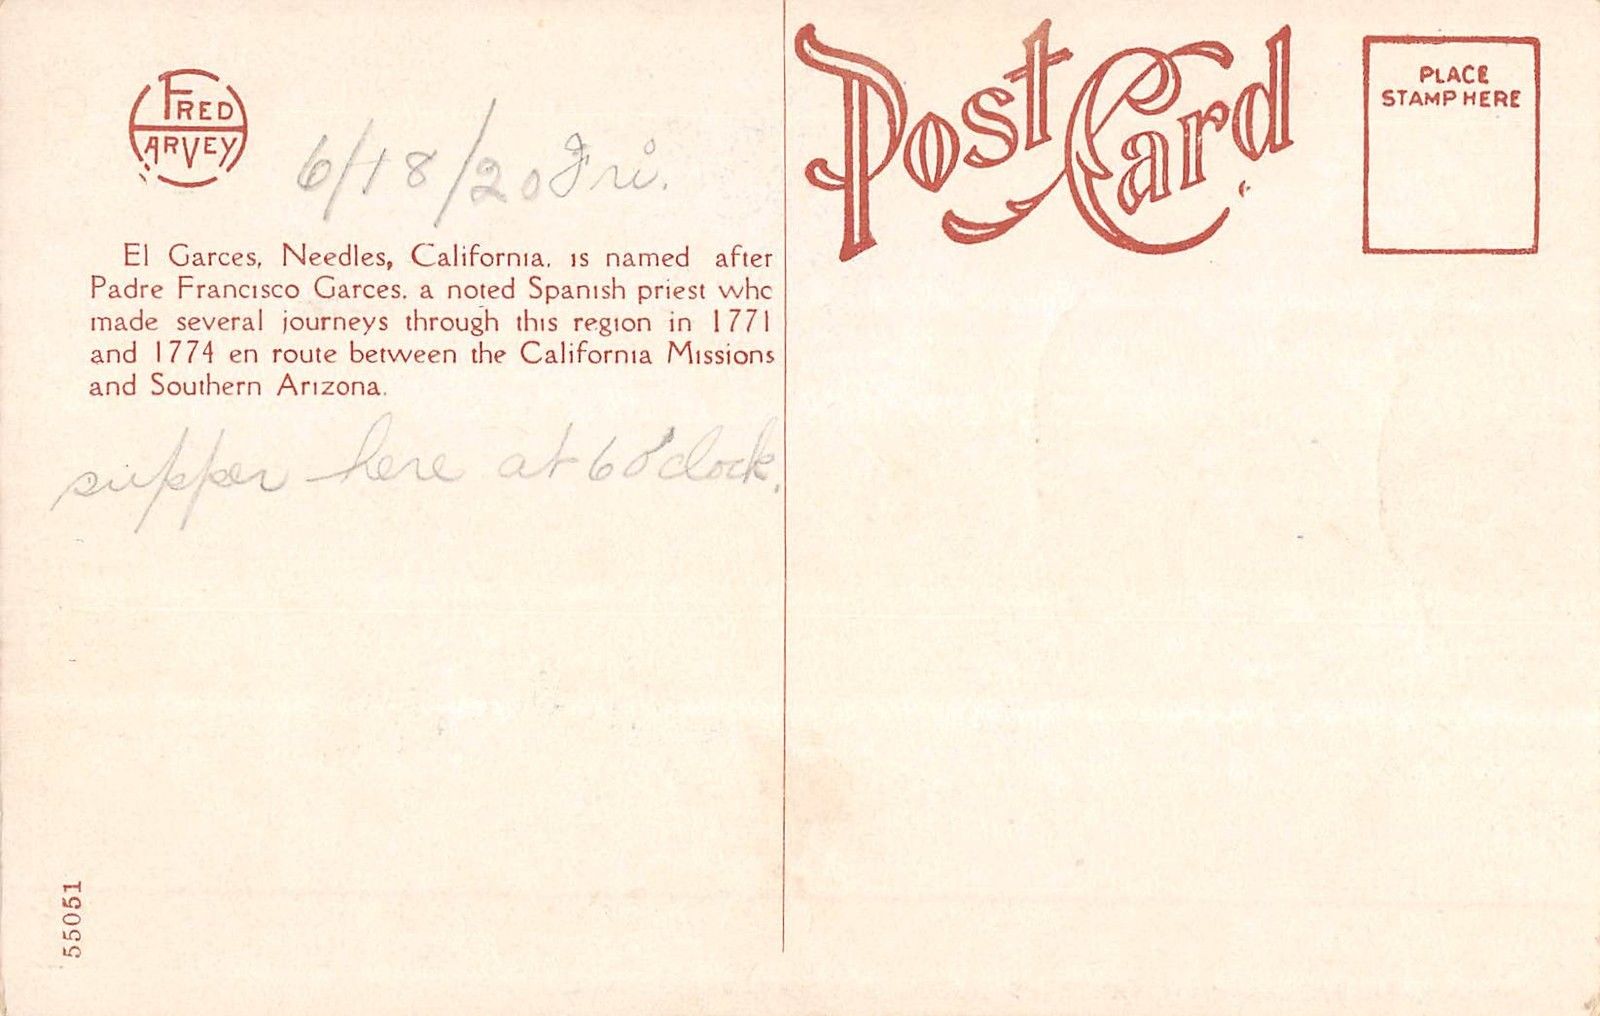 FRED
HARVEY
6/18/20 Fri.
El Garces, Needles, California, is named after
Padre Francisco Garces, a noted Spanish priest who
made several journeys through this region in 1771
and 1774 en route between the California Missions
and Southern Arizona.
supper here at 6 o'clock.
55051
Post Card
PLACE
STAMP HERE